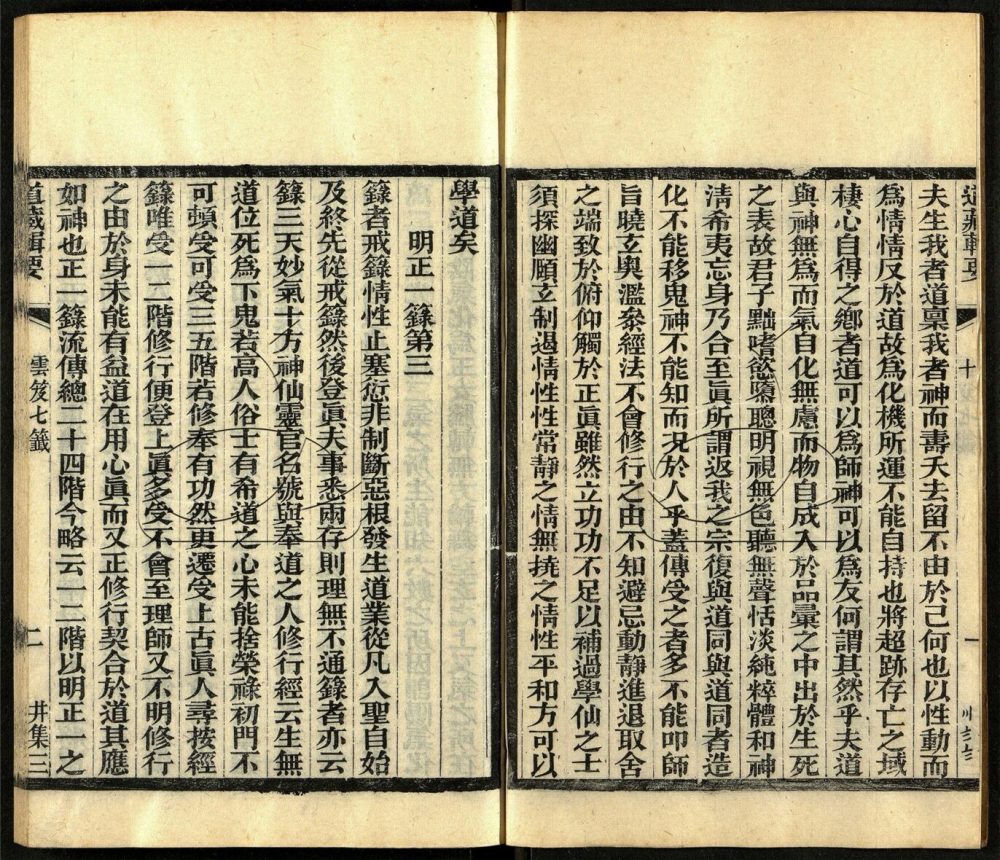 道藏輯要
夫生我者道稟我者神而壽夭去留不由於己何也以性動而
為情情反於道故為化機所運不能自持也將超跡存亡之域
棲心自得之鄉者道可以為師神可以為友何謂其然乎夫道
與神無為而氣自化無慮而物自成入於品彙之中出於生死
之表故君子黜嗜慾隳聰明視無色聽無聲恬淡純粹體和神
清希夷忘身乃合至眞所謂返我之宗復與道同與道同者造
化不能移鬼神不能知而况於人乎蓋傳受之者多不能叩師
旨曉玄奥濫叅經法不會修行之由不知避忌動靜進退取舍
之端致於俯仰觸於正眞雖然立功功不足以補過學仙之士
須探幽願立制遏情性性常靜之情無撓之情性平和方可以
學道矣
明正一籙第三
籙者戒籙情性止塞愆非制斷惡根發生道業從凡入聖自始
及終先從戒籙然後登眞夫事悉兩存則理無不通籙者亦云
籙三天妙氣十方神仙靈官名號與奉道之人修行經云生無
道位死為下鬼若高人俗士有希道之心未能捨榮祿初門不
可頓受可受三五階若修奉有功然更遷受上古眞人尋按經
籙唯受一二階修行便登上眞多受不會至理師又不明修行
之由於身未能有益道在用心眞而又正修行契合於道其應
如神也正一籙流傳總二十四階今略云一二階以明正一之
道藏輯要
雲笈七籤
二
井集三